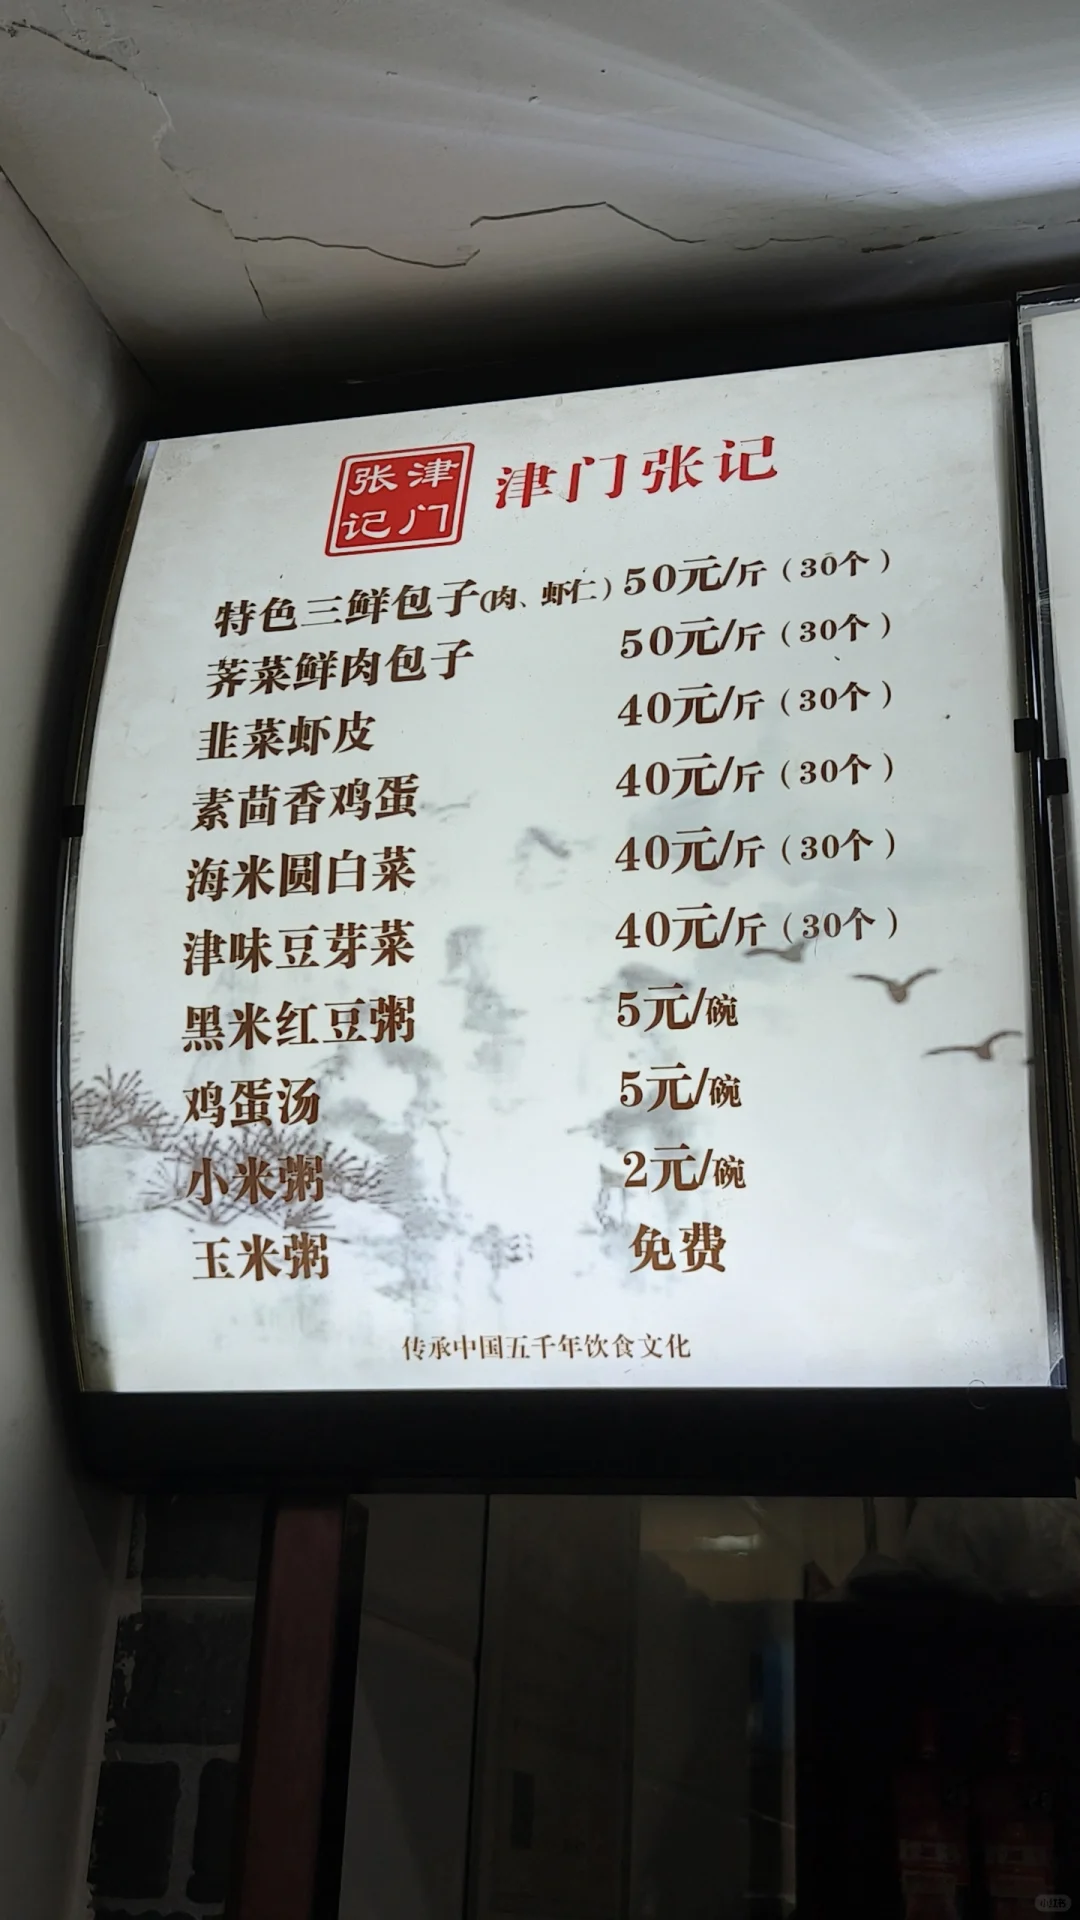 张津
记门
津门张记
特色三鲜包子(肉、虾仁) 50元/斤（30个）
荠菜鲜肉包子 50元/斤（30个）
韭菜虾皮 40元/斤（30个）
素茴香鸡蛋 40元/斤（30个）
海米圆白菜 40元/斤（30个）
津味豆芽菜 40元/斤（30个）
黑米红豆粥 5元/碗
鸡蛋汤 5元/碗
小米粥 2元/碗
玉米粥 免费
传承中国五千年饮食文化